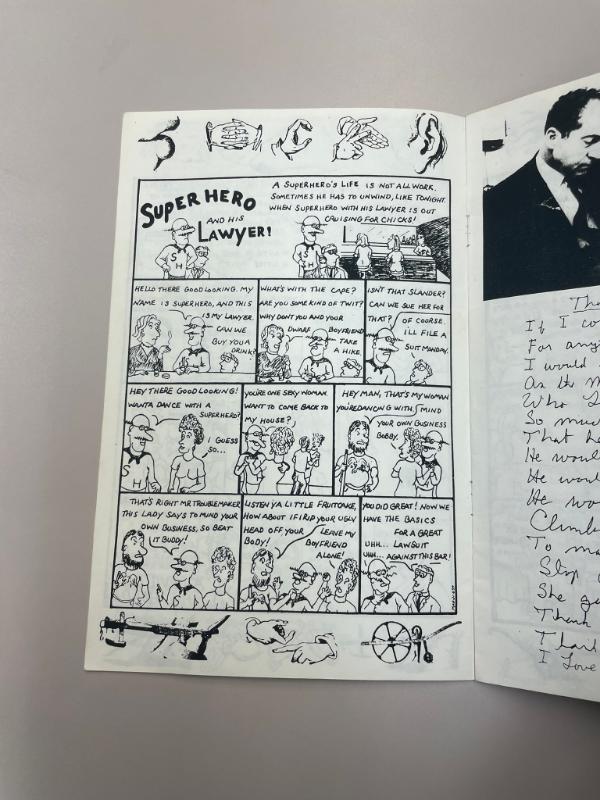 SUPER HERO
AND HIS
LAWYER!
A SUPERHERO'S LIFE IS NOT ALL WORK.
SOMETIMES HE HAS TO UNWIND, LIKE TONIGHT
WHEN SUPERHERO WITH HIS LAWYER IS OUT
CRUISING FOR CHICKS!
SH
HELLO THERE GOOD LOOKING. MY
NAME IS SUPERHERO, AND THIS
IS MY LAWYER.
CAN WE
BUY YOU A
DRINK?
WHAT'S WITH THE CAPE?
ARE YOU SOME KIND OF TWIT?
WHY DON'T YOU AND YOUR
DWARF BOYFRIEND
TAKE
A HIKE.
ISN'T THAT SLANDER?
CAN WE SUE HER FOR
THAT?
OF COURSE.
I'LL FILE A
SUIT MONDAY.
HEY THERE GOOD LOOKING!
WANTA DANCE WITH A
SUPERHERO?
I GUESS
SO...
SH
YOU'RE ONE SEXY WOMAN
WANT TO COME BACK TO
MY HOUSE?
HEY MAN, THAT'S MY WOMAN
YOU'RE DANCING WITH.
MIND
YOUR OWN BUSINESS
BUBBY.
THAT'S RIGHT MR TROUBLEMAKER
THIS LADY SAYS TO MIND YOUR
OWN BUSINESS, SO BEAT
IT BUDDY!
LISTEN YA LITTLE FRUITCAKE,
HOW ABOUT IF I RIP YOUR UGLY
HEAD OFF YOUR
BODY!
LEAVE MY
BOYFRIEND
ALONE!
YOU DID GREAT! NOW WE
HAVE THE BASICS
FOR A GREAT
UHH... LAWSUIT
UHH... AGAINST THIS BAR!
If I co
For any
I would
As the m
Who
So muc
That he
He woul
He woul
He wo
Climb
To ma
Stop
She g
Thank
Thank
I Love